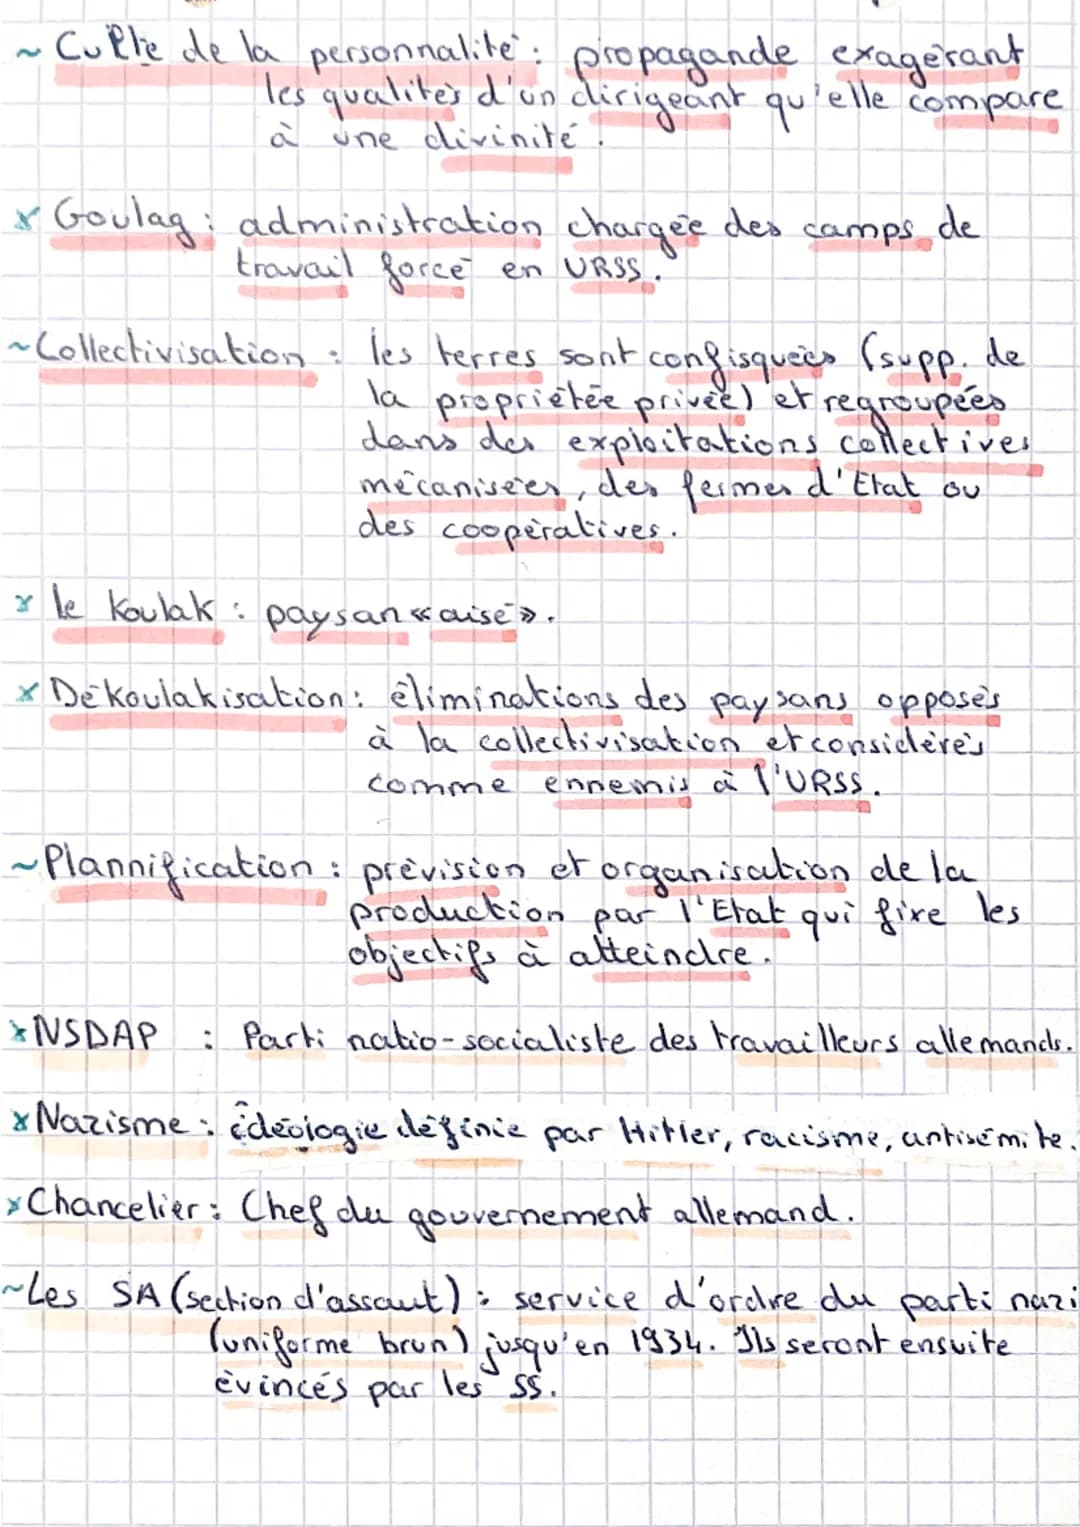 ~ Culte de la personnalité : propagande exagérant
les qualités d'un dirigeant qu'elle compare
à une divinité.
x Goulag : administration chargée des camps de
travail forcé en URSS.
~ Collectivisation : les terres sont confisquées (supp. de
la propriétée privée) et regroupées
dans des exploitations collectives
mécanisées, des fermes d'Etat ou
des coopératives.
x le Koulak : paysan «aisé».
x Dékoulakisation : éliminations des paysans opposés
à la collectivisation et considérés
comme ennemis à l'URSS.
~ Plannification : prévision et organisation de la
production par l'Etat qui fixe les
objectifs à atteindre.
x NSDAP : Parti natio-socialiste des travailleurs allemands.
x Nazisme : idéologie définie par Hitler, racisme, antisémite.
x Chancelier : Chef du gouvernement allemand.
~ Les SA (section d'assaut) : service d'ordre du parti nazi
(uniforme brun) jusqu'en 1934. Ils seront ensuite
évincés par les SS.